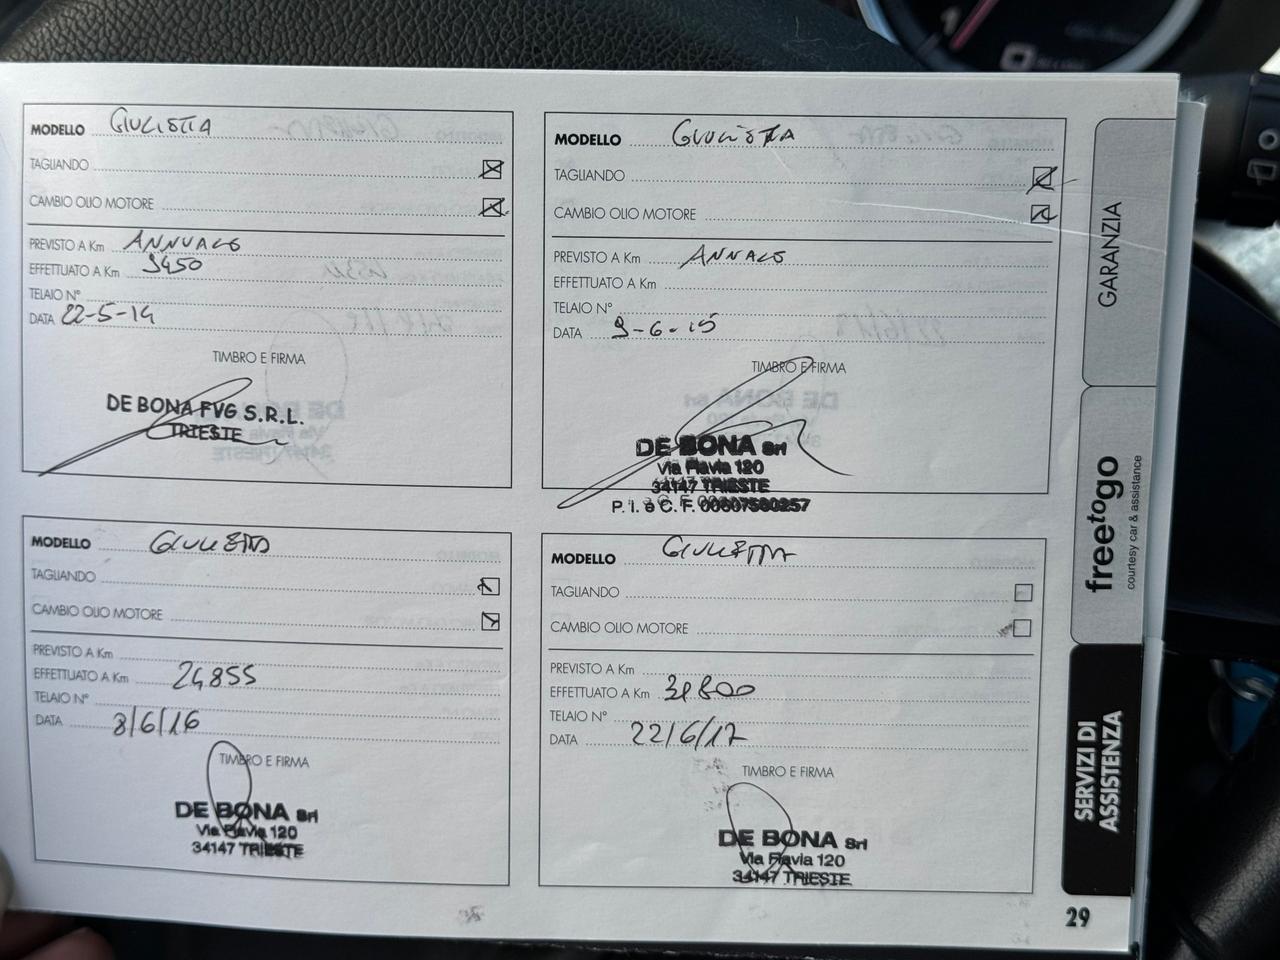 MODELLO GIULIETTA
TAGLIANDO
CAMBIO OLIO MOTORE
PREVISTO A Km ANNUALE
EFFETTUATO A Km 9450
TELAIO N°
DATA 22-5-14
TIMBRO E FIRMA
DE BONA FVG S.R.L.
TRIESTE
MODELLO GIULIETTA
TAGLIANDO
CAMBIO OLIO MOTORE
PREVISTO A Km ANNALE
EFFETTUATO A Km
TELAIO N°
DATA 9-6-15
TIMBRO E FIRMA
DE BONA Srl
Via Flavia 120
34147 TRIESTE
P. I. e C. F.
MODELLO GIULIETTA
TAGLIANDO
CAMBIO OLIO MOTORE
PREVISTO A Km
EFFETTUATO A Km 24855
TELAIO N°
DATA 8/6/16
TIMBRO E FIRMA
DE BONA Srl
Via Flavia 120
34147 TRIESTE
MODELLO GIULIETTA
TAGLIANDO
CAMBIO OLIO MOTORE
PREVISTO A Km
EFFETTUATO A Km
TELAIO N°
DATA 22/6/17
TIMBRO E FIRMA
DE BONA Srl
Via Flavia 120
34147 TRIESTE
GARANZIA
freetogo
courtesy car & assistance
SERVIZI DI
ASSISTENZA
29